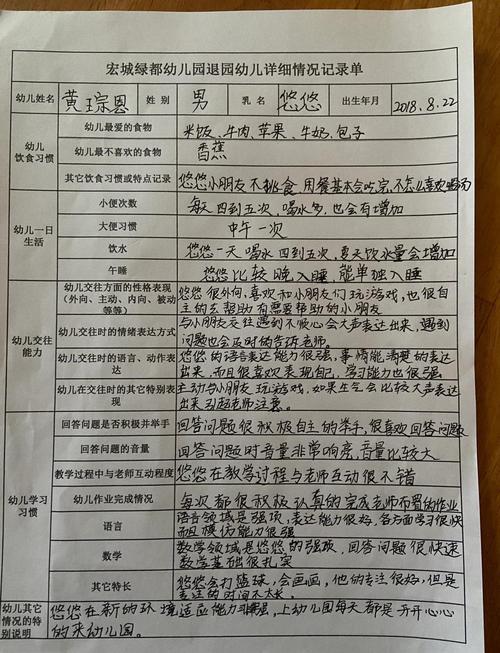 宏城绿都幼儿园退园幼儿详细情况记录单
幼儿姓名 黄琮恩 性 别 男 乳 名 悠悠 出生年月 2018.8.22
幼儿饮食习惯
幼儿最爱的食物 米饭、牛肉、苹果、牛奶、包子
幼儿最不喜欢的食物 香蕉
其它饮食习惯或特点记录 悠悠小朋友不挑食,用餐基本会吃完,不怎么喜欢喝汤
幼儿一日生活
小便次数 每天四到五次,喝水多,也会有增加
大便习惯 中午一次
饮水 悠悠一天喝水四到五次,夏天饮水量会增加
午睡 悠悠比较晚入睡,能单独入睡
幼儿交往能力
幼儿交往方面的性格表现
(外向、主动、内向、被动
等等)
悠悠很外向,喜欢和小朋友们玩游戏,也很自
主的去帮助有需要帮助的小朋友
幼儿交往时的情绪表达方式
与小朋友交往遇到不顺心会大声表达出来,遇到
问题也会及时的告诉老师。
幼儿交往时的语言、动作表
达
悠悠的语言表达能力很强,事情能清楚的表达
出来,而且很喜欢表现自己,学习能力也很强。
幼儿在交往时的其它特别表
现
主动与小朋友玩游戏,如果生气会比较大声表达
出来引起老师注意。
幼儿学习习惯
回答问题是否积极并举手 回答问题很积极自主的举手,很喜欢回答问题
回答问题的音量 回答问题时音量非常响亮,音量比较大
教学过程中与老师互动程度 悠悠在教学过程与老师互动很不错
幼儿作业完成情况 每次都很积极认真的完成老师布置的作业
语言
语言领域是强项,表达能力很好,各方面学习很快
而且模仿能力很强
数学
数学领域是悠悠的强项,回答问题很快速
数学基础很扎实
其它特长
悠悠会打篮球,会画画,他的专注很好,但是
专注的时间不太长。
幼儿其它
情况的特
别说明
悠悠在新的环境适应能力非强,上幼儿园每天都是开开心心
的来幼儿园。